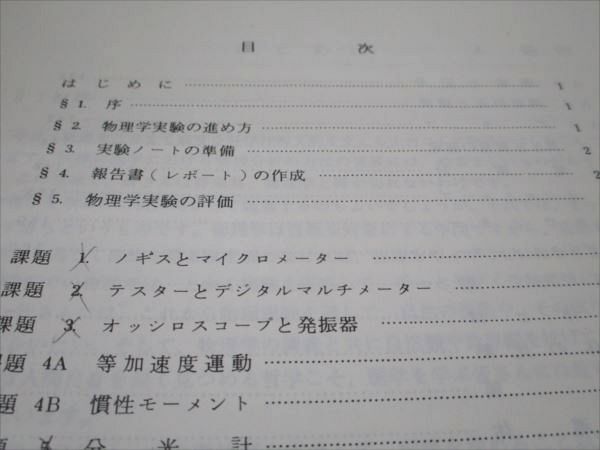 目次
はじめに 1
§ 1. 序 1
§ 2. 物理学実験の進め方 1
§ 3. 実験ノートの準備 2
§ 4. 報告書(レポート)の作成 2
§ 5. 物理学実験の評価
課題 1. ノギスとマイクロメーター
課題 2. テスターとデジタルマルチメーター
課題 3. オッシロスコープと発振器
課題 4A 等加速度運動
題 4B 慣性モーメント
分光計